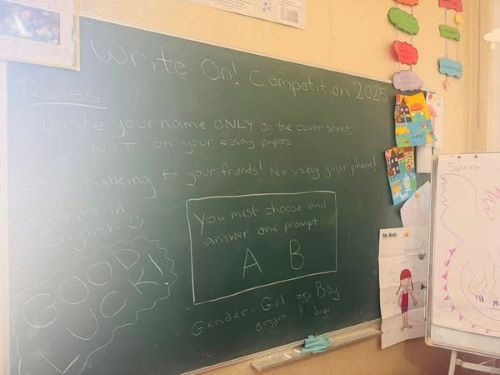 Write On! Competition 2025
Rules
- Write your name ONLY on the cover sheet,
NOT on your essay papers
- No talking to your friends! No using your phone!
- Write in
English
You must choose and
answer one prompt:
A B
GOOD
LUCK!
Gender - Girl or Boy
My Body